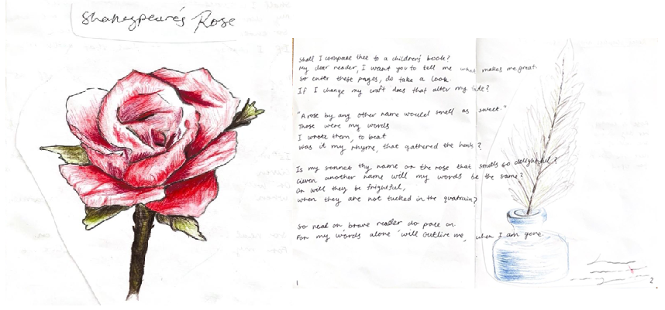 Shakespeare's Rose
Shall I compare thee to a children's book?
My dear reader, I want you to tell me what makes me great.
So enter these pages, do take a look
If I change my craft does that alter my fate?
"A rose by any other name would smell as sweet."
Those were my words
I wrote them, to beat
Was it my rhyme, that gathered the herds?
Is my sonnet thy name or the rose that smells so delightful?
Given another name will my words be the same?
Or will they be frightful,
When they are not tucked in the quatrain?
So read on brave reader do pace on
For my words alone will outlive me, when I am gone.
1
2